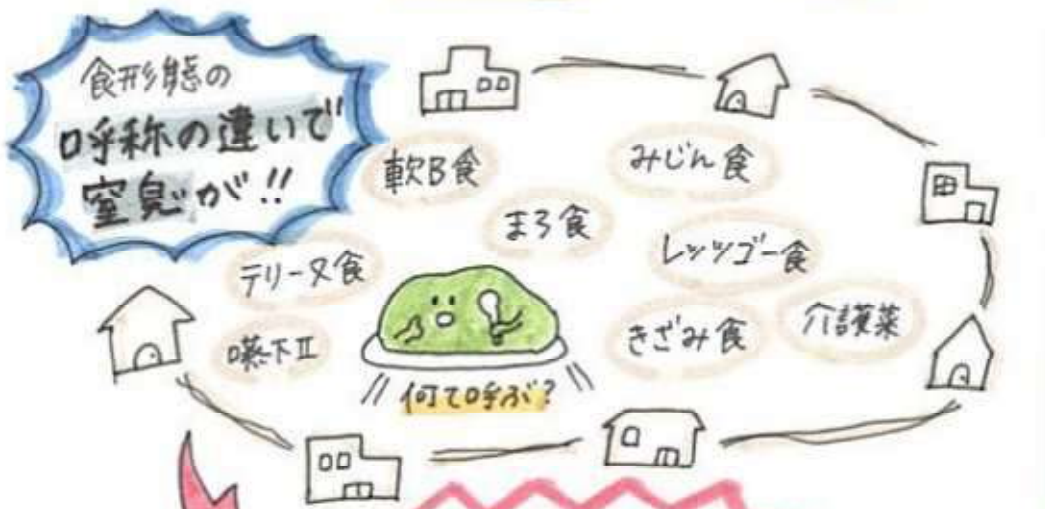 食形態の
呼称の違いで
窒息が!!
軟B食
みじん食
まろ食
レッツゴー食
テリーヌ食
きざみ食
介護菜
嚥下II
何て呼ぶ?